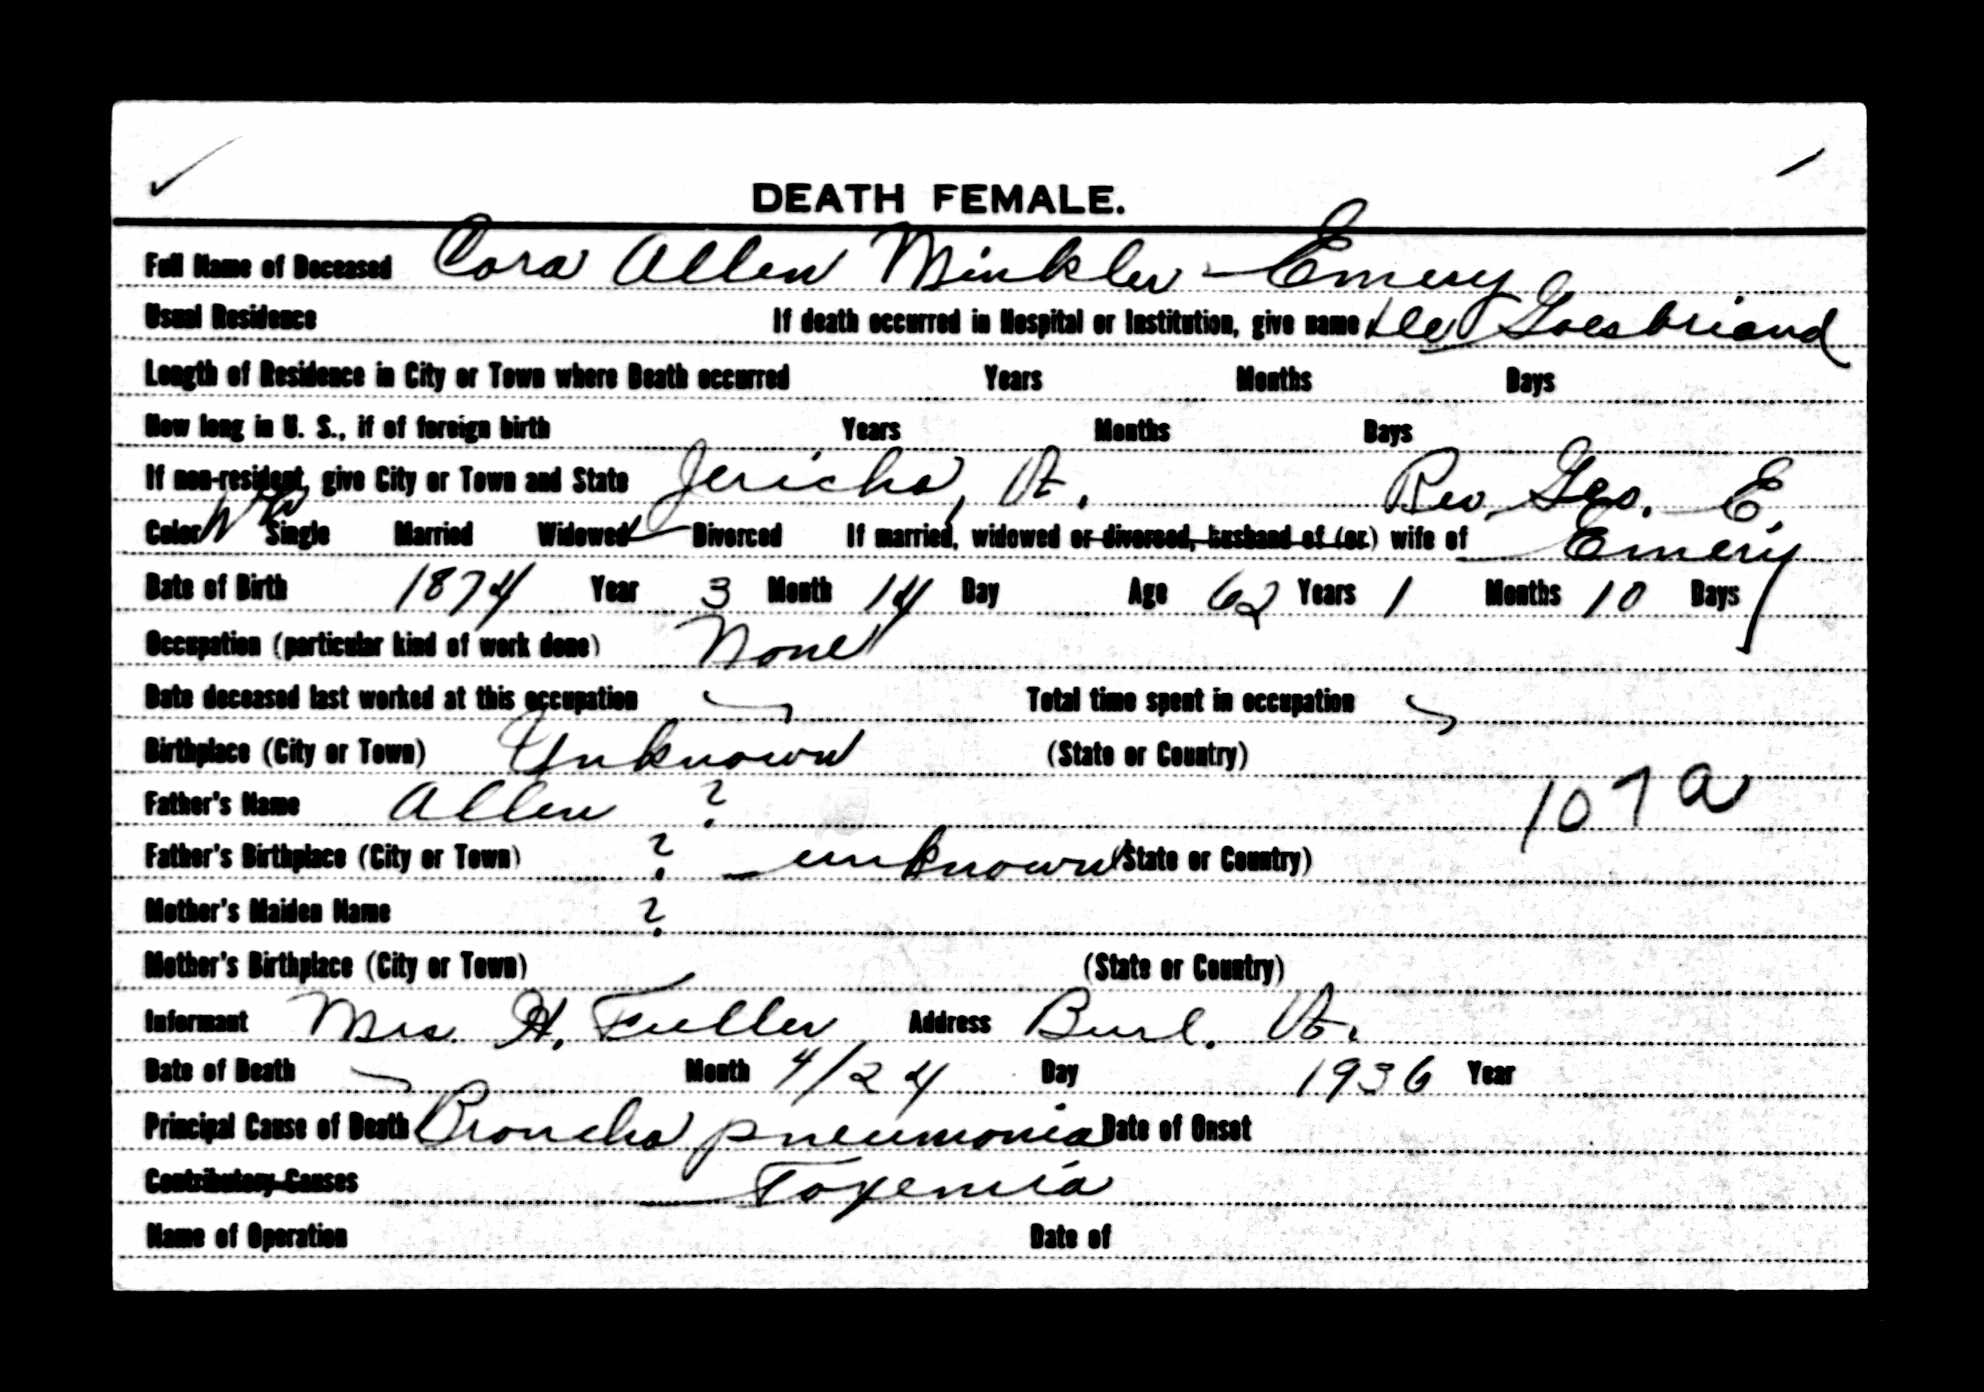 DEATH FEMALE.
Full Name of Deceased Cora Allen Minkler Emery
Usual Residence If death occurred in Hospital or Institution, give name De Goesbriand
Length of Residence in City or Town where Death occurred Years Months Days
How long in U. S., if of foreign birth Years Months Days
If non-resident, give City or Town and State Jericho, Vt. Rev. Geo. E.
Color W Single Married Widowed Divorced If married, widowed or divorced, husband of (or) wife of Emery
Date of Birth 1874 Year 3 Month 14 Day Age 62 Years 1 Months 10 Days
Occupation (particular kind of work done) None
Date deceased last worked at this occupation Total time spent in occupation
Birthplace (City or Town) Unknown (State or Country)
Father's Name Allen ? 107a
Father's Birthplace (City or Town) ? unknown (State or Country)
Mother's Maiden Name ?
Mother's Birthplace (City or Town) (State or Country)
Informant Mrs. H. Fuller Address Burl. Vt.
Date of Death Month 4/24 Day 1936 Year
Principal Cause of Death Broncho pneumonia Date of Onset
Contributory Causes Toxemia
Name of Operation Date of